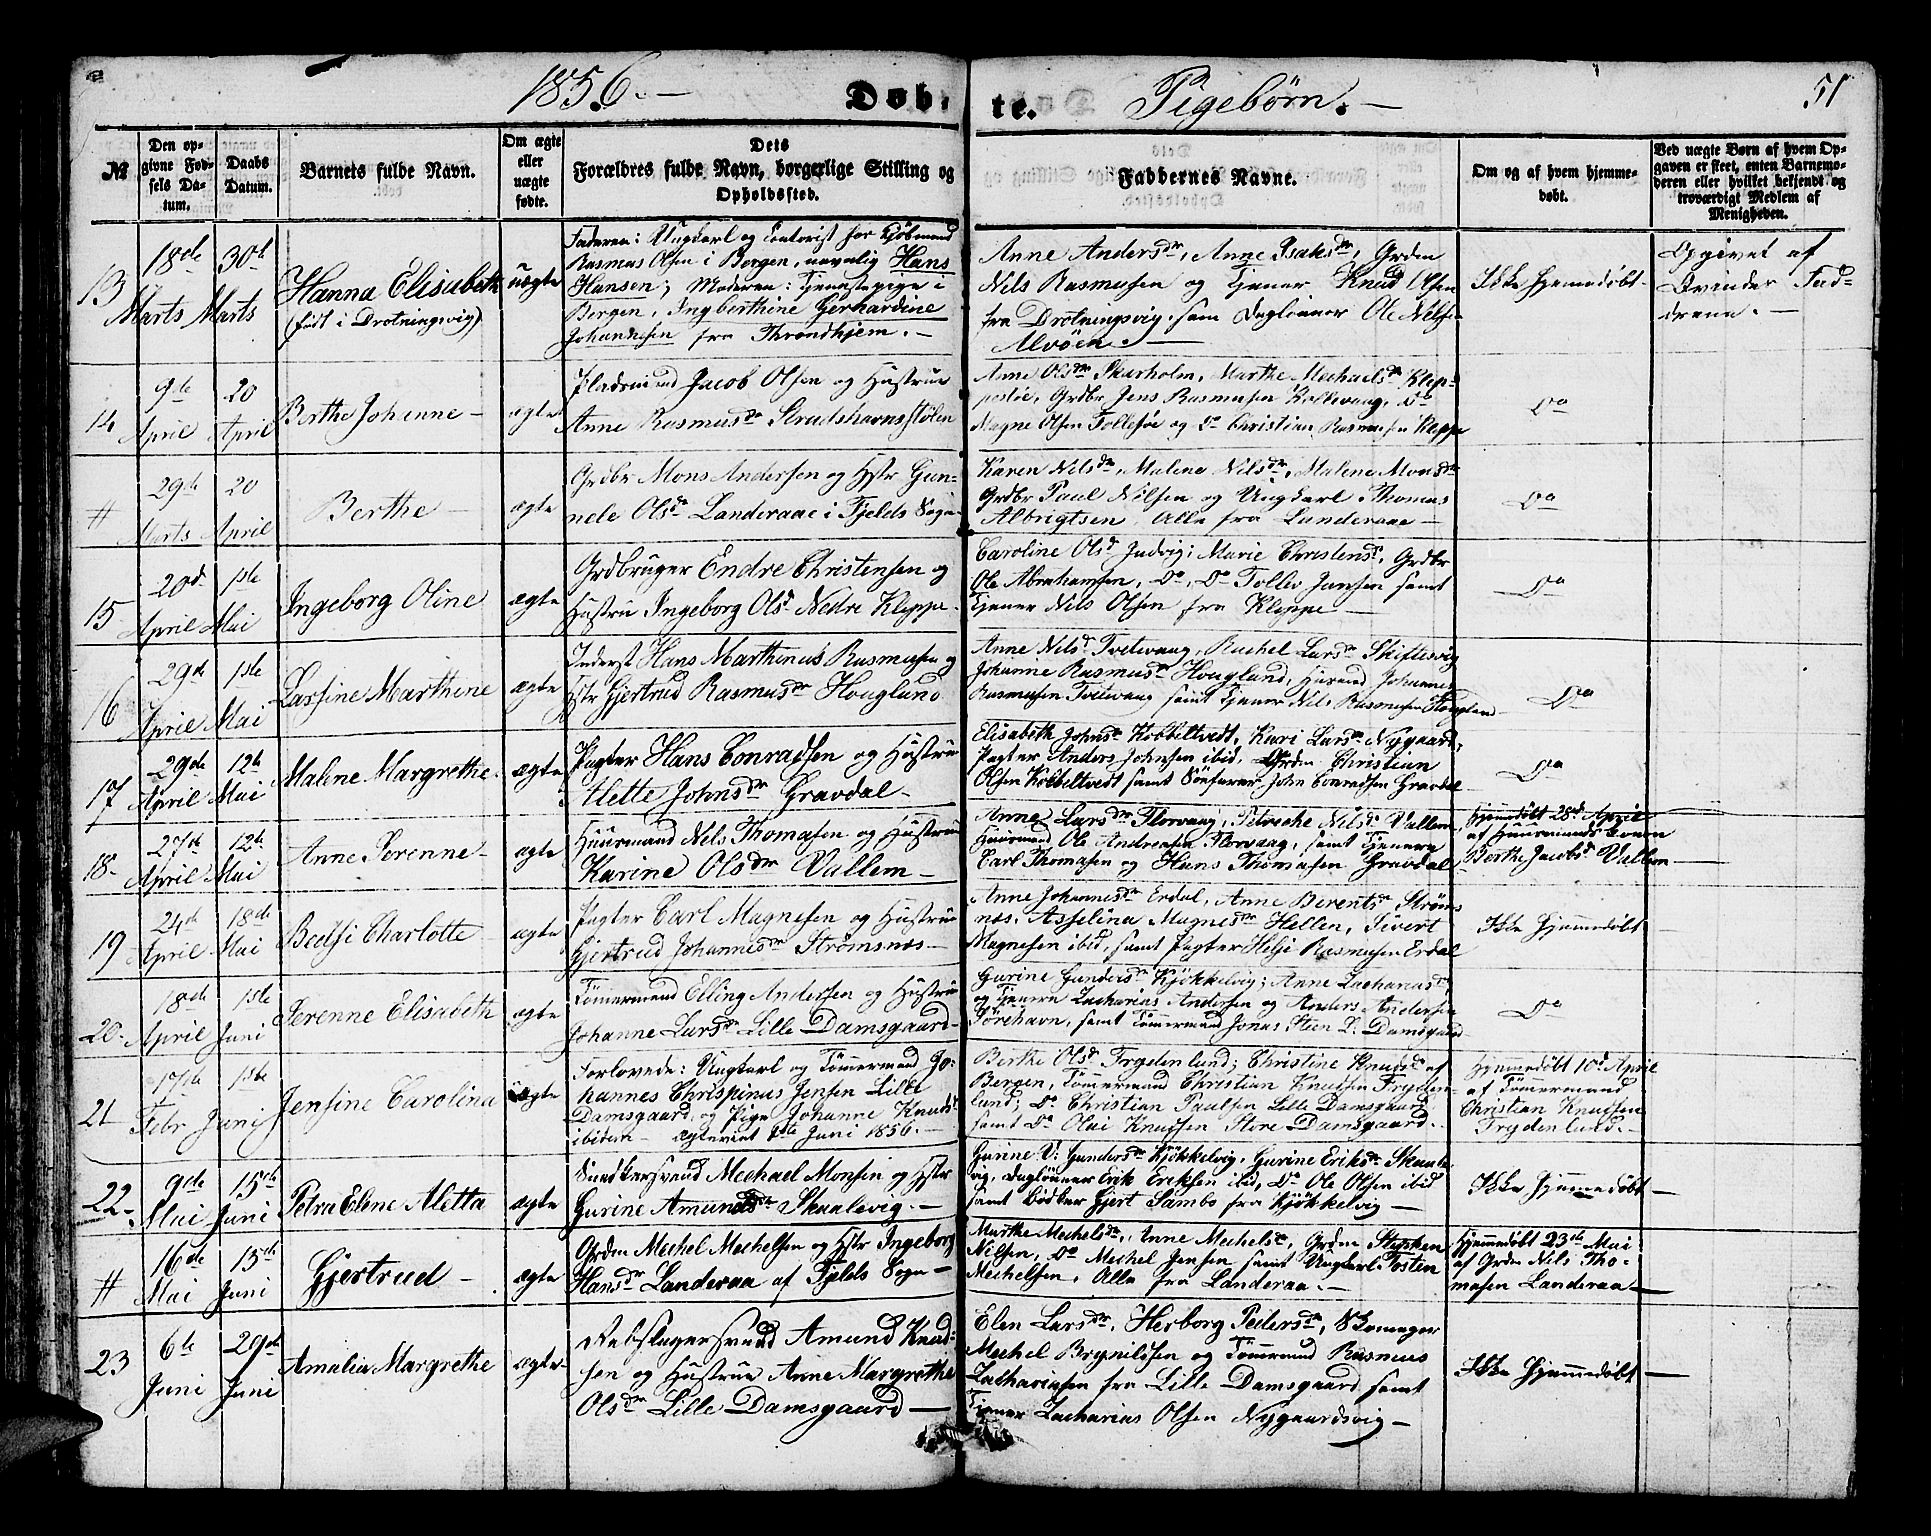 1856.— Døb- te. Pigebørn.— 51
№
Den op-
givne Fød-
sels Da-
tum.
Daabs
Datum.
Barnets fulde Navn.
Om ægte
eller
uægte
fødte.
Dets
Forældres fulde Navn, borgerlige Stilling og
Opholdssted.
Faddernes Navne.
Om og af hvem hjemme-
døbt.
Ved uægte Børn af hvem Op-
gaven er skeet, enten Barnemo-
deren eller hvilket bekjendt og
troværdigt Medlem af
Menigheden.
13
18de
Marts
30te
Marts
Hanna Elisabeth
(født i Drotningsvig)
uægte
Faderen: Ungkarl og Contorist hos Kjøbmand
Rasmus Olsen i Bergen, navnlig Hans
Hansen; Moderen: Tjenestepige i
Bergen, Ingberthine Gerhardine
Johannesen fra Throndhjem.—
Anne Andersdr, Anne Isaksdr, Grdm
Nils Rasmusen og Tjener Knud Olsen
fra Drotningsvig, sam Daglönner Ole Nilsen
Alvöen.—
Ikke hjemmedøbt
Opgivet af
Qvinder Fad-
drene.—
14
9de
April
20
April
Berthe Johanne—
ægte
Pladsmand Jacob Olsen og Hustrue
Anne Rasmusdr Strudshavnsstölen
Anne Olsdr Skarholm, Marthe Mechaelsdr Klep-
pestøe, Grdbr Jens Rasmusen Koltevaag, Do
Magne Olsen Follesøe og Do Christian Rasmusen Kleppe
Do
#
29de
Marts
20
April
Berthe—
ægte
Grdbr Mons Andersen og Hstr Gun-
nele Olsdr Landeraae i Fjelds Sogn
Karen Nilsdr, Malene Nilsdr, Malene Monsdr
Grdbr Paul Nilsen og Ungkarl Thomas
Albrigtsen, Alle fra Landeraae—
Do
15
20de
April
1ste
Mai
Ingeborg Oline
ægte
Grdbruger Endre Christensen og
Hustru Ingeborg Olsd Nedre Kleppe.
Caroline Olsd Judvig; Marie Christensd, Grdbr
Ole Abrahamsen, Do, Do Tollev Jansen samt
Tjener Nils Olsen fra Kleppe—
Do
16
29de
April
1ste
Mai
Larsine Marthine
ægte
Inderst Hans Marthinus Rasmusen og
Hstr Gjertrud Rasmusdr Hougland
Anne Nilsd Tveitevaag, Rachel Larsd Skiftesvig
Johanne Rasmusdr Hougland, Huusmd Johannes
Rasmusen Tveitevaag samt Tjener Nils Rasmusen Hougland
Do
17
29de
April
12te
Mai
Malene Margrethe.
ægte
Pagter Hans Conradsen og Hustrue
Alette Johnsdr Gravdal—
Elisabeth Johnsd Kobbeltvedt, Kari Larsdr Nygaard,
Pagter Anders Johnsen ibid, Grdm Christian
Olsen Kobbeltvedt samt Söefarer John Conradsen Gravdal—
Do
18.
27de
April
12te
Mai
Anne Serenne—
ægte
Huusmand Nils Thomasen og Hustrue
Karine Olsdr Vallem—
Anne Larsdr Florvaag, Petreche Nilsd Vallem,
Huusmand Ole Andreasen Florvaag, samt Tjenere
Carl Thomasen og Hans Thomasen Gravdal
Hjemmedöbt 28de April
af Huusmands Konen
Berthe Jacobsd Vallem—
19
24de
April
18de
Mai
Bedsi Charlotte
ægte
Pagter Carl Magnesen og Hustrue
Gjertrud Johannesdr Strömsnæs—
Anne Johannesdr Erdal, Anne Berentsdr Ströms-
næs, Asselina Magnesdr Hellen, Sivert
Magnesen ibid, samt Pagter Helje Rasmusen Erdal
Ikke hjemmedøbt
20.
18de
April
1ste
Juni
Serenne Elisabeth
ægte
Tömmermand Elling Andersen og Hustrue
Johanne Larsdr Lille Damsgaard—
Gurine Gundersdr Kjökkelvig; Anne Zachariasdr
og Tjenere Zacharias Andersen og Anders Andersen
Sörehavn, samt Tömmermand Jonas Steen L. Damsgaard
Do
21
17de
Febr
1ste
Juni
Jensine Carolina
uægte
Forlovede: Ungkarl og Tömmermand Jo-
hannes Chrispinus Jensen Lille
Damsgaard og Pige Johanne Knudsd
ibidem— ægteviet 1ste Juni 1856.—
Berthe Olsd Frydenlund; Christine Knudsd af
Bergen, Tömmermand Christian Knudsen Fryden-
lund; Do Christian Paulsen Lille Damsgaard
samt Do Olai Knudsen Store Damsgaard.
Hjemmedöbt 10de April
af Tömmermand
Christian Knudsen
Frydenlund.—
22
9de
Mai
15de
Juni
Petra Eline Aletta
ægte
Mechael Monsen og Hstr
Gurine Amundsdr Skaalevig.—
Gurine V. Gundersdr Kjökkelvig, Gurine Eriksdr Skaale-
vig, Daglönner Erik Eriksen ibid, Do Ole Olsen ibid
samt Bödker Gjert Sambo fra Kjökkelvig—
Ikke hjemmedøbt—
#
16de
Mai
15de
Juni
Gjertrud—
ægte
Grdm Mechel Mechelsen og Hstr Ingeborg
Hansdr Landeraa af Fjelds Sogn—
Marthe Mechelsdr, Anne Mechelsdr, Grdm Stephen
Nilsen, Do Mechel Jensen samt Ungkarl Tosten
Mechelsen, Alle fra Landeraa.—
Hjemmedöbt 23de Mai
af Grdm Nils Tho-
masen Landeraa—
23
6te
Juni
29de
Juni
Amalia Margrethe
ægte
Rebslagersvend Amund Knud-
sen og Hustrue Anne Margrethe
Olsdr Lille Damsgaard—
Elen Larsdr, Herborg Pedersdr, Skomager
Mechel Brynilsen og Tömmermd Rasmus
Zachariasen fra Lille Damsgaard samt
Tjener Zacharias Olsen Nygaardsvig—
Ikke hjemmedøbt—